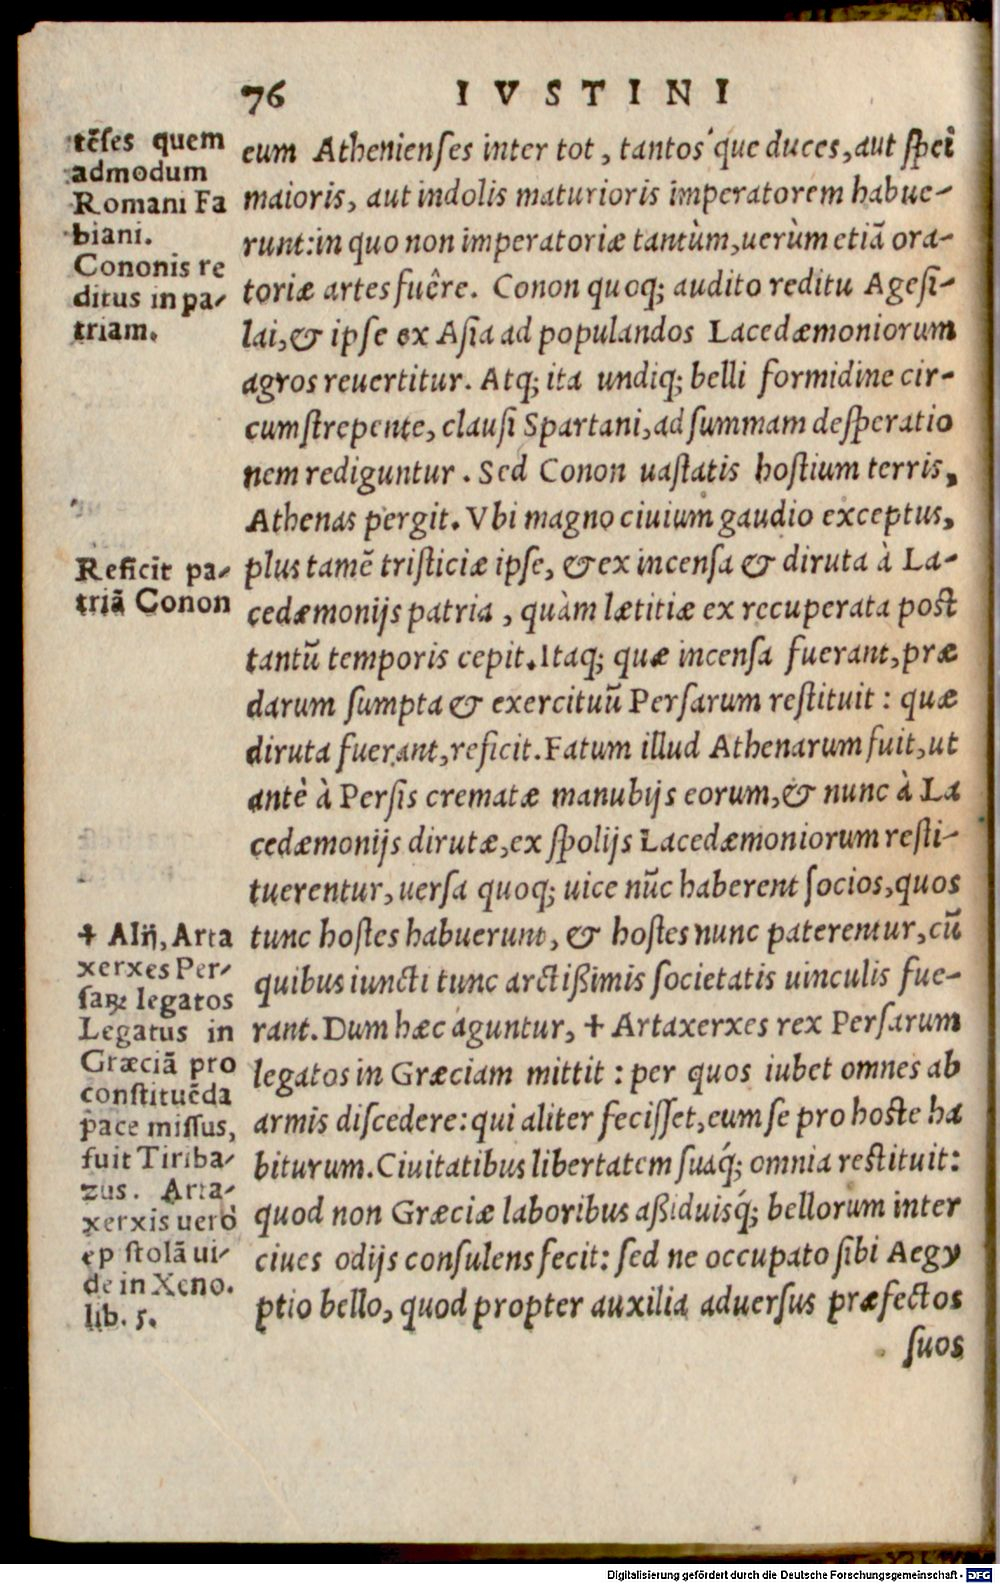 76 IVSTINI
tẽſes quem
admodum
Romani Fa
biani.
Cononis re
ditus in pa-
triam.
eum Athenienſes inter tot, tantos'que duces, aut ſpei
maioris, aut indolis maturioris imperatorem habue-
runt: in quo non imperatoriæ tantùm, uerùm etiã ora-
toriæ artes fuêre. Conon quoq; audito reditu Ageſi-
lai, & ipſe ex Aſia ad populandos Lacedæmoniorum
agros reuertitur. Atq; ita undiq; belli formidine cir-
cumſtrepente, clauſi Spartani, ad ſummam deſperatio
nem rediguntur. Sed Conon uaſtatis hoſtium terris,
Athenas pergit. Vbi magno ciuium gaudio exceptus,
Reficit pa-
triã Conon
plus tamẽ triſticiæ ipſe, & ex incenſa & diruta à La-
cedæmonijs patria, quàm lætitiæ ex recuperata poſt
tantũ temporis cepit. Itaq; quæ incenſa fuerant, præ
darum ſumpta & exercituũ Perſarum reſtituit: quæ
diruta fuerant, reficit. Fatum illud Athenarum fuit, ut
antè à Perſis crematæ manubijs eorum, & nunc à La
cedæmonijs dirutæ, ex ſpolijs Lacedæmoniorum reſti-
tuerentur, uerſa quoq; uice nũc haberent ſocios, quos
tunc hoſtes habuerunt, & hoſtes nunc paterentur, cũ
quibus iuncti tunc arctißimis ſocietatis uinculis fue-
rant. Dum hæc aguntur, ✝ Artaxerxes rex Perſarum
legatos in Græciam mittit: per quos iubet omnes ab
armis diſcedere: qui aliter feciſſet, eum ſe pro hoſte ha
biturum. Ciuitatibus libertatem ſuaq́; omnia reſtituit:
quod non Græciæ laboribus aßiduisq́; bellorum inter
ciues odijs conſulens fecit: ſed ne occupato ſibi Aegy
ptio bello, quod propter auxilia aduerſus præfectos
ſuos
✝ Alij, Arta
xerxes Per-
ſaꝝ legatos
Legatus in
Græciã pro
conſtituẽda
pace miſſus,
fuit Tiriba-
zus. Arta-
xerxis uerò
ep ſtolã ui-
de in Xeno.
lib. 5.
Digitalisierung gefördert durch die Deutsche Forschungsgemeinschaft - DFG